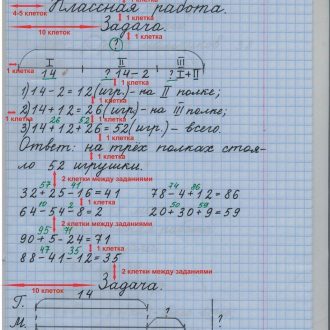 4-5 клеток Классная работа.
1 клетка
10 клеток Задача.
1 клетка
?
1 клетка
I II III
14 ? 14-2 ? I+II
1 клетка
1) 14-2=12 (игр.) - на II полке;
2) 14+12=26 (игр.) - на III полке;
26 52
3) 14+12+26=52 (игр.) - всего.
Ответ: на трёх полках стоя-
ло 52 игрушки.
2 клетки между заданиями
57 41 74 86
32+25-16=41 78-4+12=86
10 50 59
64-54-8=2 20+30+9=59
95 71 1 клетка
90+5-24=71
47 35 1 клетка
88-41-12=35
2 клетки между заданиями
10 клеток Задача.
14 1 клетка
Т.
?
М. ?